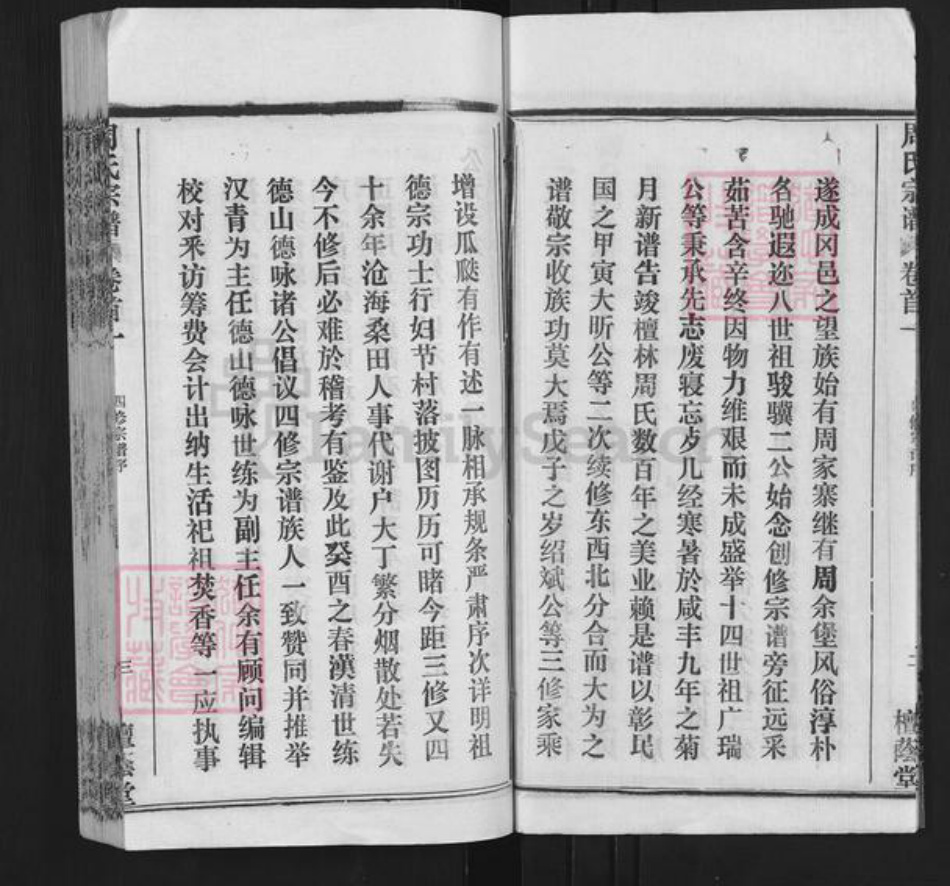 周氏宗谱
卷首一
檀荫堂
遂成冈邑之望族始有周家寨继有周余堡风俗淳朴
名驰遐迩八世祖骏骥二公始念创修宗谱旁征远采
茹苦含辛终因物力维艰而未成盛举十四世祖广瑞
公等秉承先志废寝忘歺几经寒暑於咸丰九年之菊
月新谱告竣檀林周氏数百年之美业赖是谱以彰民
国之甲寅大昕公等二次续修东西北分合而大为之
谱敬宗收族功莫大焉戊子之岁绍斌公等三修家乘
增设瓜瓞有作有述一脉相承规条严肃序次详明祖
德宗功士行妇节村落披图历历可睹今距三修又四
十余年沧海桑田人事代谢户大丁繁分烟散处若失
今不修后必难於稽考有鉴及此癸酉之春漢清世练
德山德咏诸公倡议四修宗谱族人一致赞同并推举
汉青为主任德山德咏世练为副主任余有顾问编辑
校对釆访筹费会计出纳生活祀祖焚香等一应执事
周氏宗谱
卷首一
四修宗谱序
三
檀荫堂
FamilySearch